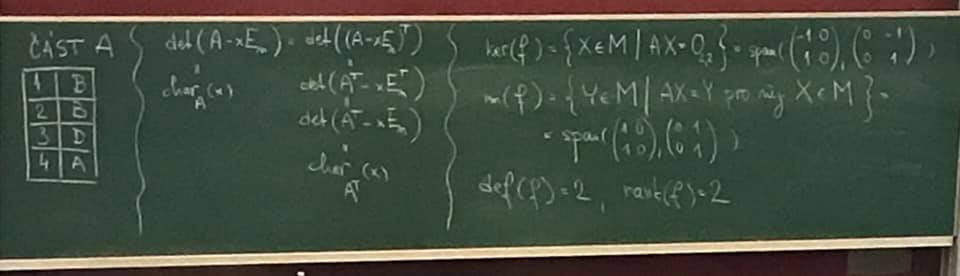 ČÁST A
1 B
2 B
3 D
4 A
det(A-xE_n) = det((A-xE_n)^T)
char_A(x)
det(A^T-xE_n^T)
det(A^T-xE_n)
char_{A^T}(x)
ker(f) = {X∈M | AX=O_{2,2}} = span((-1 0 / 1 0), (0 -1 / 0 1))
im(f) = {Y∈M | AX=Y pro něj X∈M} =
= span((1 0 / 1 0), (0 1 / 0 1))
def(f)=2, rank(f)=2